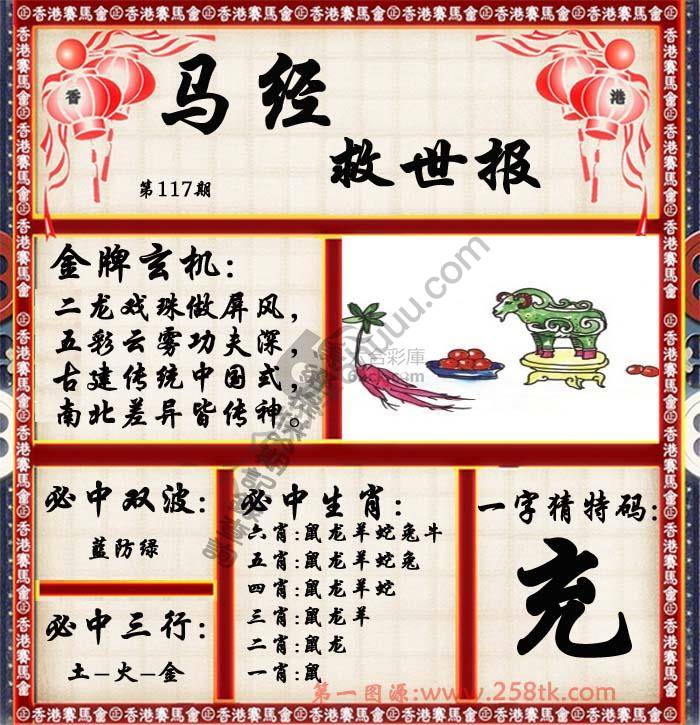 香港賽馬會
香
港
马经
救世报
第117期
金牌玄机:
二龙戏珠做屏风,
五彩云雾功夫深,
古建传统中国式,
南北差异皆传神。
必中双波:
蓝防绿
必中三行:
土-火-金
必中生肖:
六肖:鼠龙羊蛇兔牛
五肖:鼠龙羊蛇兔
四肖:鼠龙羊蛇
三肖:鼠龙羊
二肖:鼠龙
一肖:鼠
一字猜特码:
充
第一图源:www.258tk.com